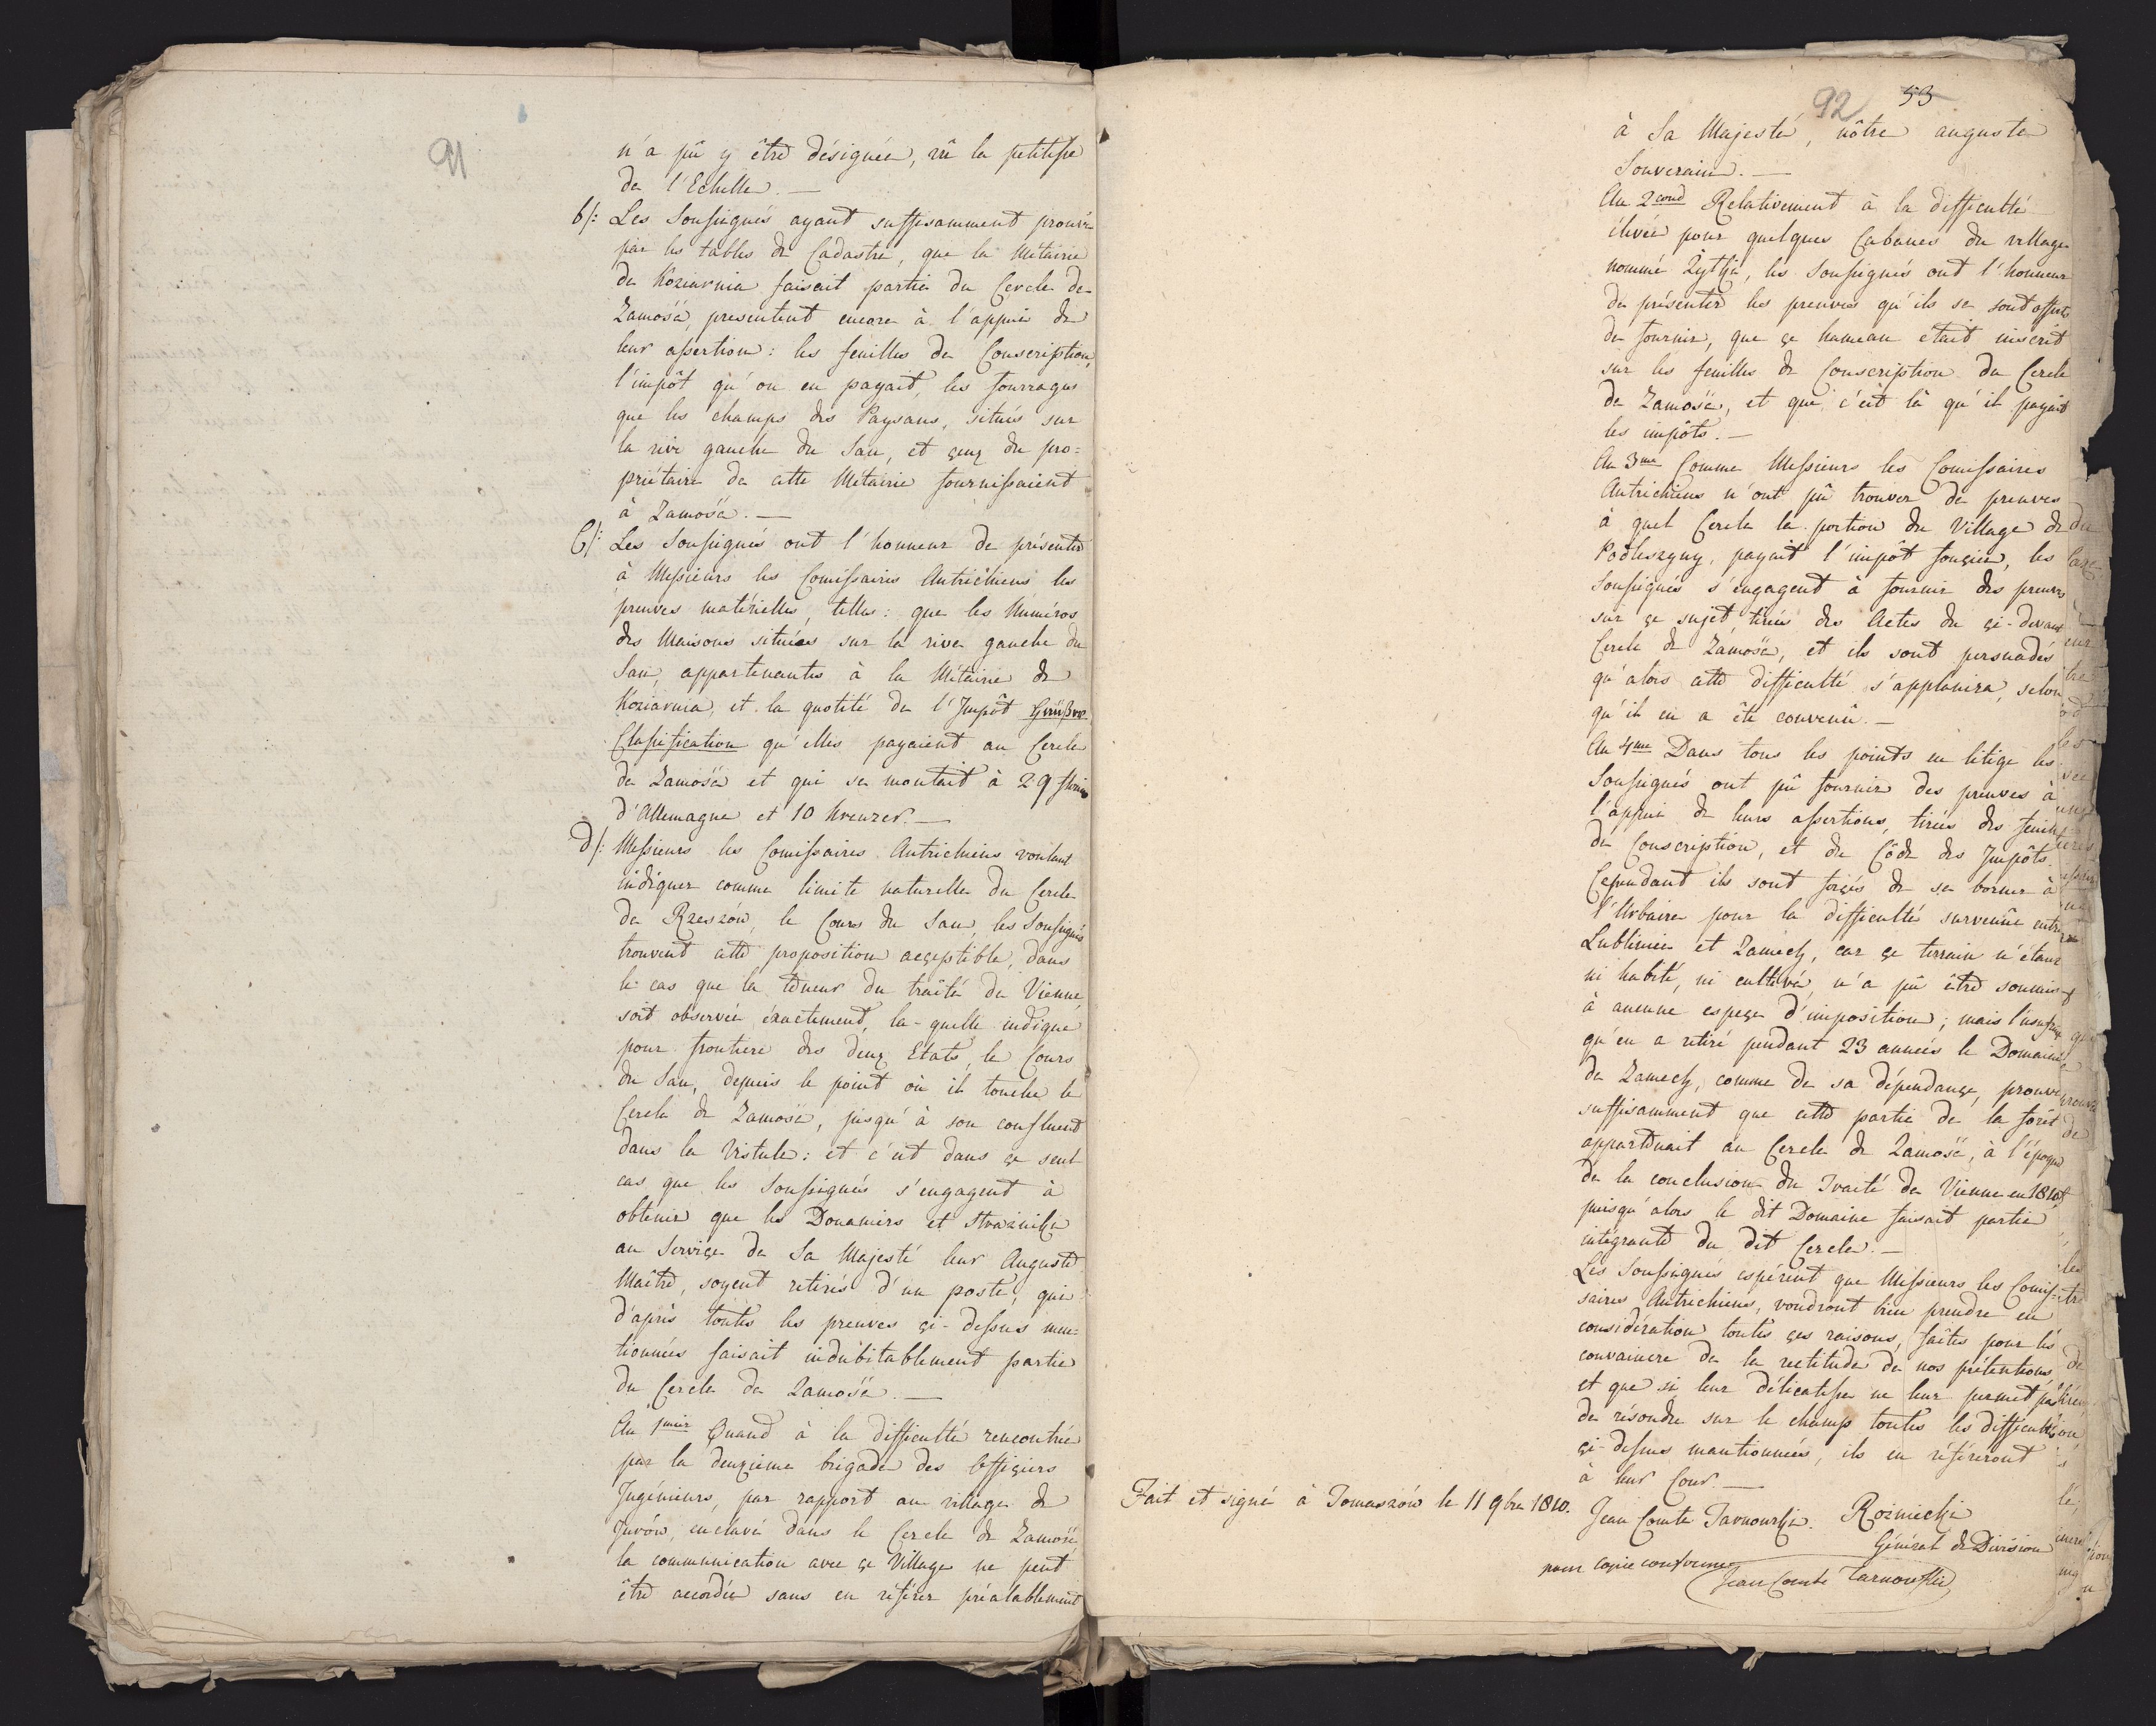 91
n'a pû y être désignée, vû la petitesse
de l'Echelle. —
b/: Les Soussignés ayant suffisamment prouvé
par les tables de Cadastre, que la Métairie
de Koziarnia faisait partie du Cercle de
Zamość, presentent encore à l'appui de
leur assertion: les feuilles de Conscription,
l'impôt qu'on en payait, les fourrages
que les champs des Paysans, situés sur
la rive gauche du San, et çeux du pro=
priétaire de cette Métairie fournissaient
à Zamość. —
C/: Les Soussignés ont l'honneur de présenter
à Messieurs les Comissaires Autrichiens les
preuves matérielles, telles: que les Numéros
des Maisons situées sur la rive gauche du
San, appartenantes à la Métairie de
Koziarnia, et la quotité de l'Impôt
Classification qu'elles payaient au Cercle
de Zamość et qui se montait à 29 florins
d'Allemagne et 10 Kreuzer. —
d/: Messieurs les Comissaires Autrichiens voulant
indiquer comme limite naturelle du Cercle
de Rzeszów, le Cours du San, les Soussignés
trouvent cette proposition açceptible, dans
le cas que la teneur du traîté de Vienne,
soit observée éxactement, la-quelle indique
pour frontiere des deux Etats, le Cours
du San, depuis le point où il touche le
Cercle de Zamość, jusqu'à son confluent
dans la Vistule: et c'est dans çe seul
cas, que les Soussignés s'engagent à
obtenir que les Douaniers et Strażniki
au Serviçe de Sa Majesté leur Auguste
Maître, soyent retirés d'un poste, qui
d'après toutes les preuves çi-dessus men=
tionnées faisait indubitablement partie
du Cercle de Zamość. —
Au 1mier Quand à la difficulté rencontrée
par la deuxieme brigade des Offiçiers
Ingénieurs, par rapport au village de
Jurów, enclavé dans le Cercle de Zamość,
la communication avec çe Village ne peut
être accordée sans en référer préalablement
92 53
à Sa Majesté, nôtre auguste
Souverain. —
Au 2cond Relativement à la difficulté
élevée pour quelques Cabanes du village
nommé Żytki, les Soussignés ont l'honneur
de présenter les preuves qu'ils se sont offerts
de fournir, que çe hameau etait inscrit
sur les feuilles de Conscription du Cercle
de Zamość, et que c'est là qu'il payait
les impôts. —
Au 3me Comme Messieurs les Comissaires
Autrichiens n'ont pû trouver de preuves
à quel Cercle la portion du Village de
Podleszyny, payait l'impôt fonçier, les
Soussignés s'engagent à fournir des preuves
sur çe sujet tirées des Actes du çi-devant
Cercle de Zamość, et ils sont persuadés
qu'alors cette difficulté s'applanira, selon
qu'il en a été convenû. —
Au 4me Dans tous les points en litige les
Soussignés ont pû fournir des preuves à
l'appui de leurs assertions, tirées des feuilles
de Conscription, et du Côde des Impôts.
Cependant ils sont forçés de se borner à
l'Urbaire pour la difficulté survenûe entre
Lubliniec et Zamech, car çe terrain n'étant
ni habité, ni cultivé, n'a pû être soumis
à aucune espeçe d'imposition; mais l'usufruit
qu'en a retiré pendant 23 années le Domaine
de Zamech, comme de sa dépendançe, prouve
suffisamment que cette partie de la forêt
appartenait au Cercle de Zamość, à l'époque
de la conclusion du Traité de Vienne en
puisqu'alors le dit Domaine faisait partie
intégrante du dit Cercle. —
Les Soussignés espérent que Messieurs les Comis=
saires Autrichiens, voudront bien prendre en
considération toutes çes raisons, faîtes pour les
convaincre de la rectitude de nos prétentions,
et que si leur délicatesse ne leur permet pas
de résoudre sur le champ toutes les difficultés
çi-dessus mantionnées, ils en référeront
à leur Cour. —
Fait et signé à Tomaszów le 11 9bre 1810.
Jean Comte Tarnowski. Rożniecki
Général de Division
pour copie conforme
Jean Comte Tarnowski